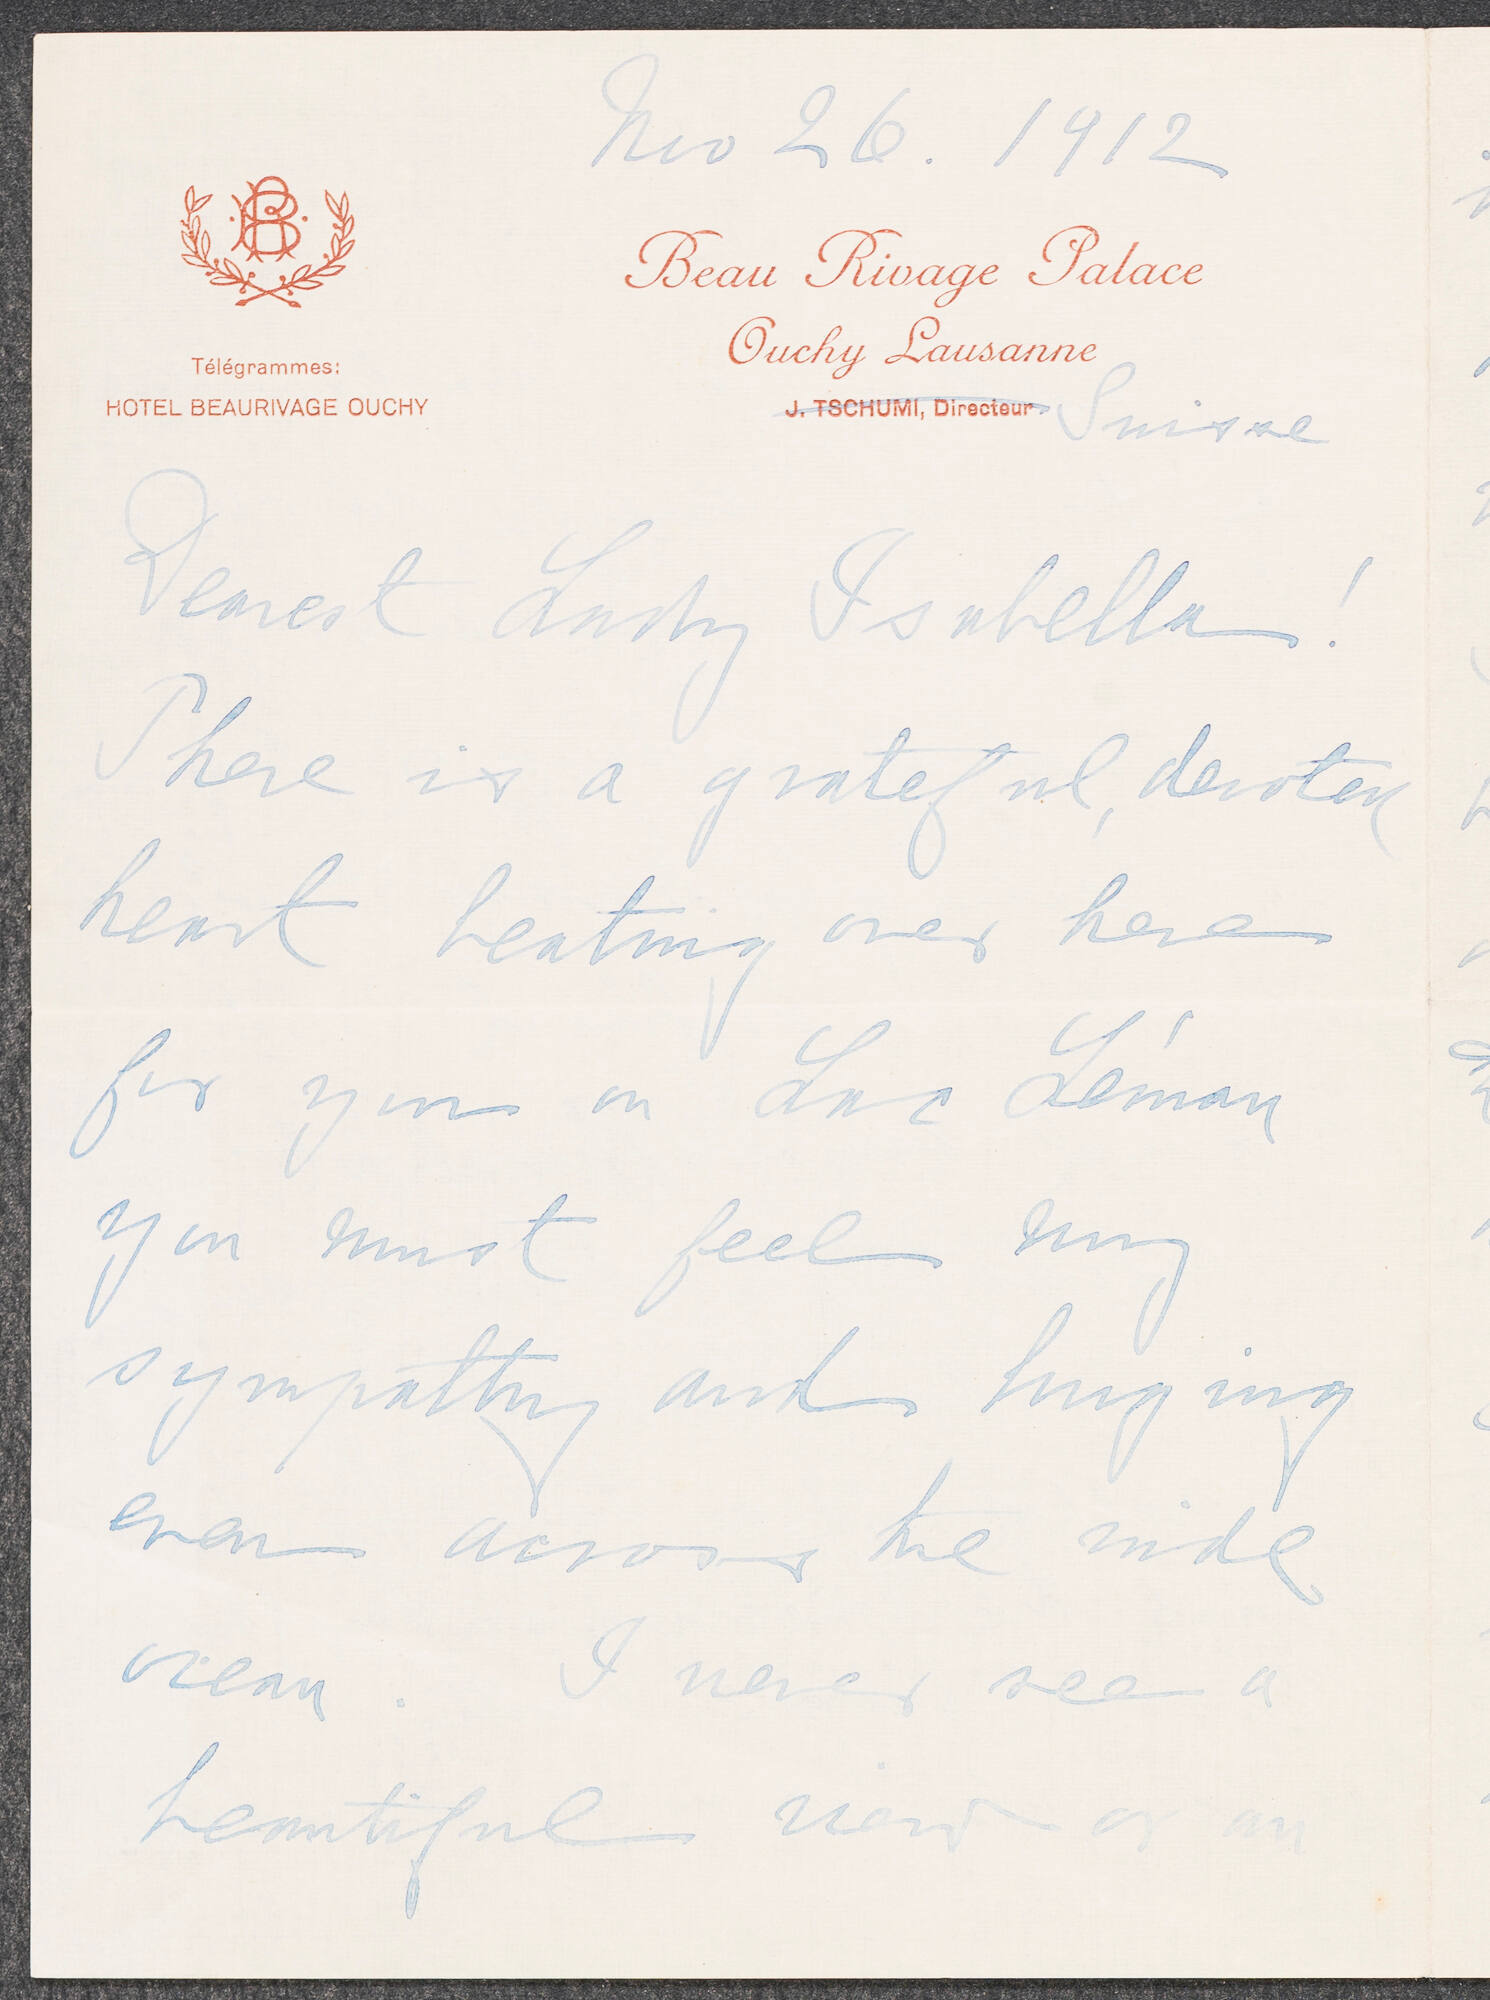 Nov 26. 1912
BRH
Beau Rivage Palace
Ouchy Lausanne
Télégrammes:
HOTEL BEAURIVAGE OUCHY
J. TSCHUMI, Directeur Suisse
Dearest Lady Isabella!
There is a grateful, devoted
heart beating over here
for you on Lac Léman
you must feel my
sympathy and longing
even across the wide
ocean. I never see a
beautiful view or an